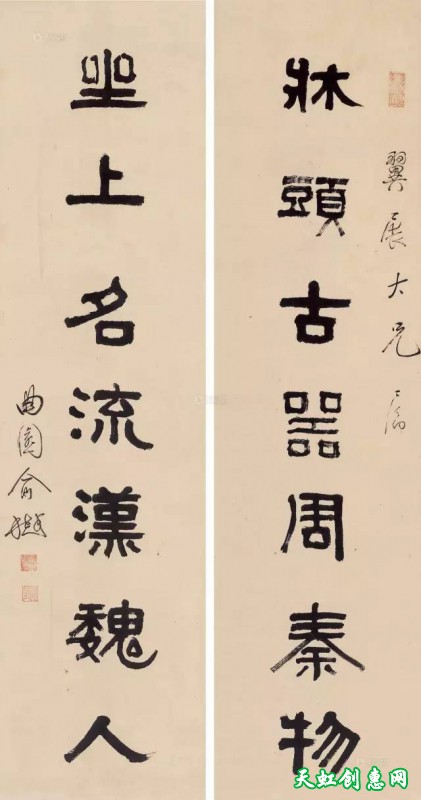 翼展大兄
牀頭古器周秦物
坐上名流漢魏人
曲園俞樾
天虹创惠网